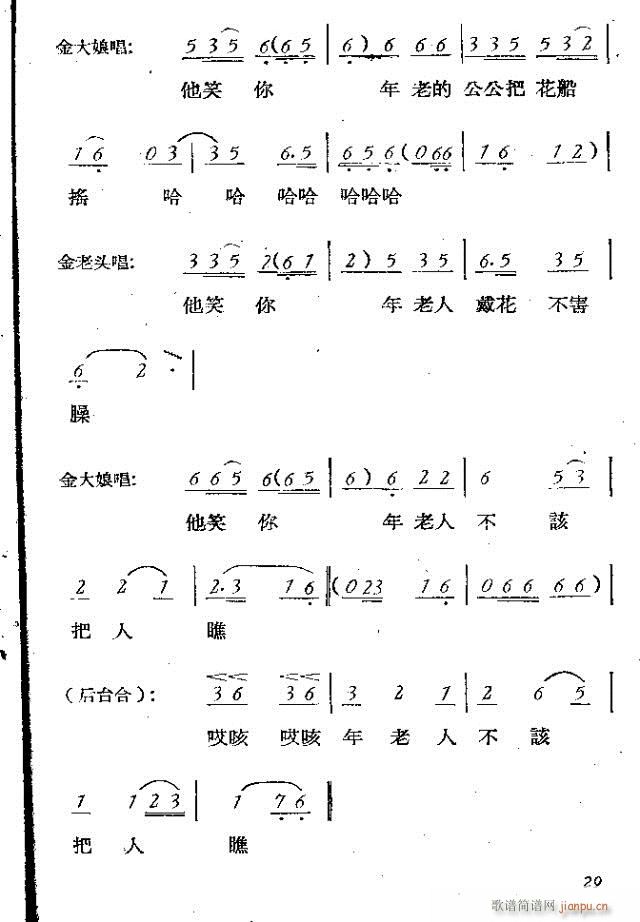 金大娘唱: 5 3 5 6 (6 5 | 6) 6 6 6 | 3 3 5 5 3 2 |
他笑你 年老的 公公把 花船
1 6 0 3 | 3 5 6. 5 | 6 5 6 (0 6 6 | 1 6 1 2) |
搖 哈 哈 哈哈 哈哈哈
金老头唱: 3 3 5 2 (6 1 | 2) 5 3 5 | 6. 5 3 5 |
他笑你 年 老人 戴花 不害
6 2 |
臊
金大娘唱: 6 6 5 6 (6 5 | 6) 6 2 2 | 6 5 3 |
他笑你 年 老人 不 該
2 2 1 | 2. 3 1 6 ‖ (0 2 3 1 6 | 0 6 6 6 6) |
把 人 瞧
(后台合): 3 6 3 6 | 3 2 1 | 2 6 5 |
哎咳 哎咳 年 老 人 不 該
1 1 2 3 | 1 7 6 ‖
把 人 瞧
29
歌谱简谱网 jianpu.cn